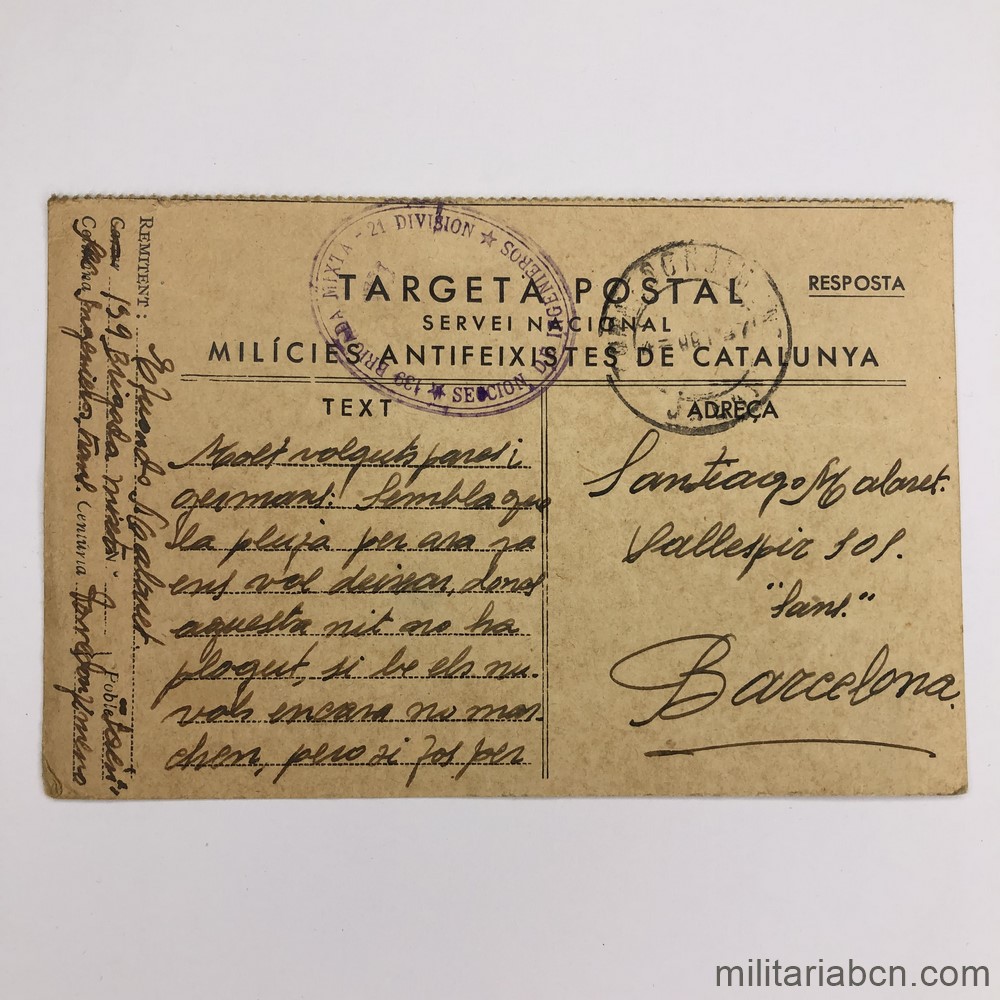 TARGETA POSTAL
RESPOSTA
SERVEI NACIONAL
MILÍCIES ANTIFEIXISTES DE CATALUNYA
139 BRIGADA MIXTA - 21 DIVISION ★ SECCION DE INGENIEROS ★
TEXT
Molt volguts pares i
germans: Sembla que
la pluja per ara ja
ens vol deixar, dons
aquesta nit no ha
plogut, si be els nu-
vols encara no mar-
chen, pero si fos per
ADREÇA
Santiago Malaret.
Vallespir 101.
"Sans."
Barcelona
REMITENT:
139 Brigada mixta
Centuria
Pobla
Jaen
militariabcn.com